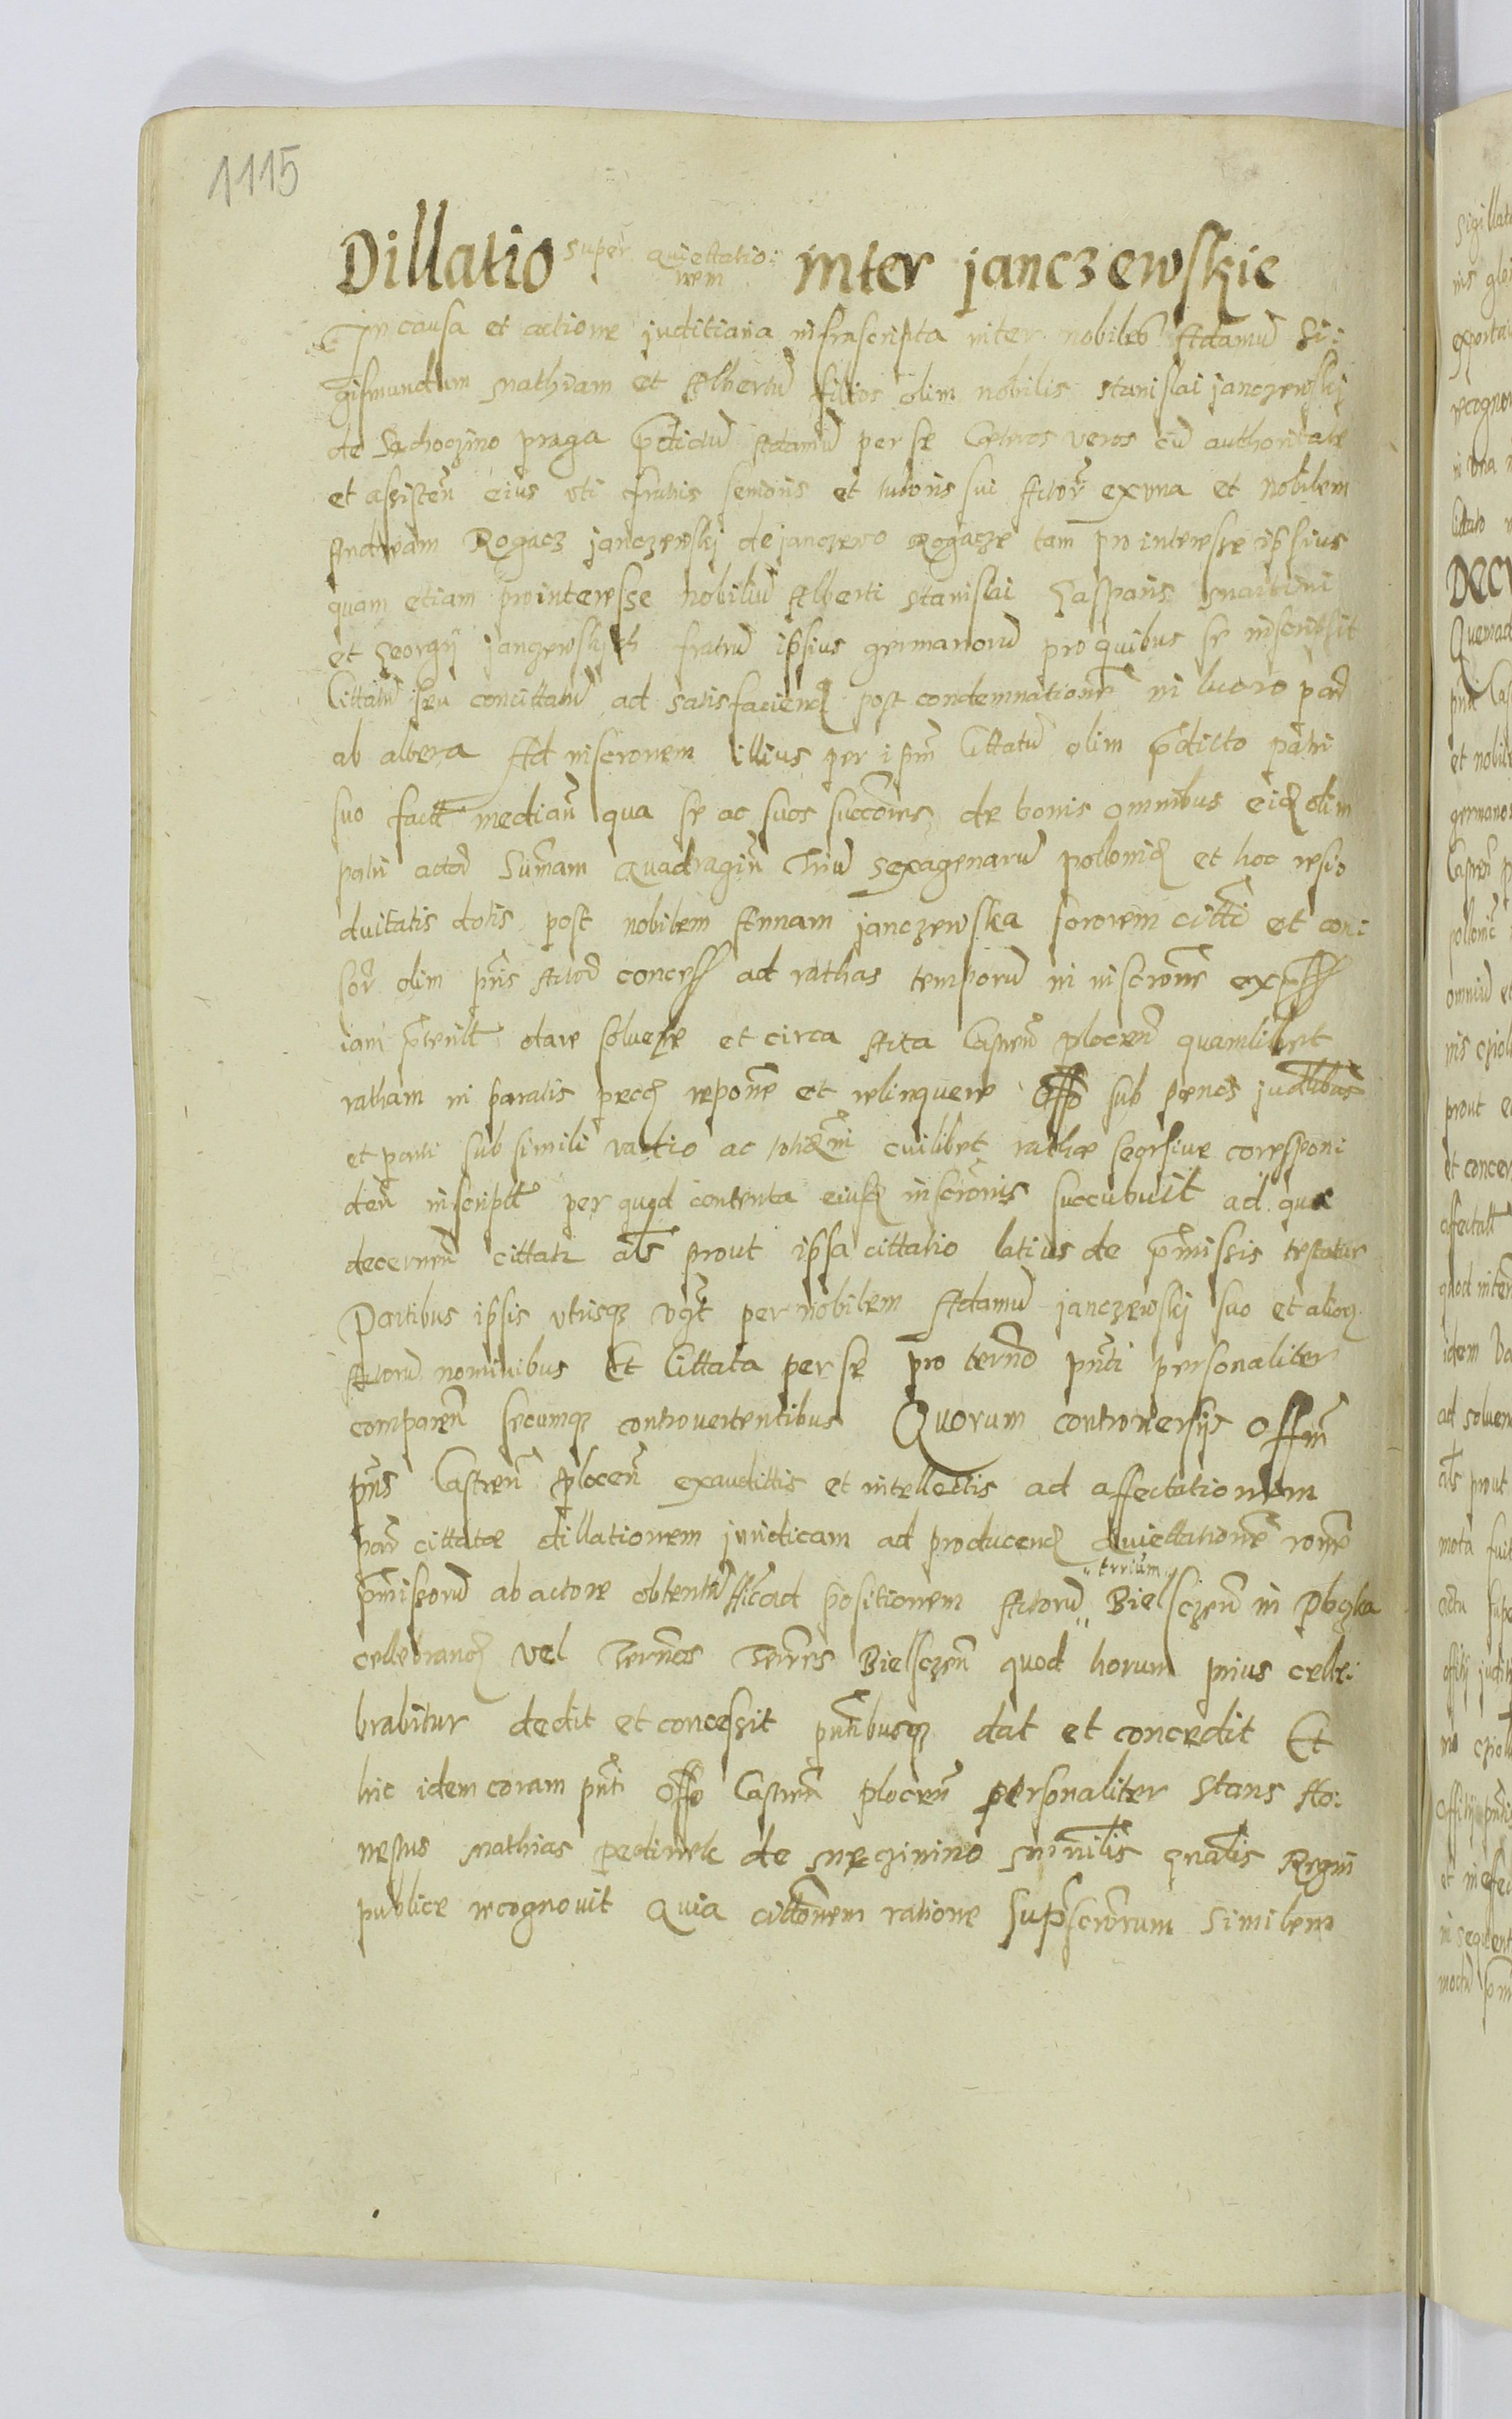 1115
Dillatio super quiettatio: nem inter janczewskie
In causa et actione juditiaria infrascripta inter nobiles Adamu Si:
gismundum Mathiam et Albertu filios olim nobilis Stanislai janczewskj
de Sachoczino praga pdictu Adamu per se Cæteros veros cu authoritate
et assisten eius uti fratris senioris et tutoris sui Actor exvna et Nobilem
Andream Rogacz janczewskj de janczewo Rogacze tam pro interesse ipsius
quam etiam pro interesse nobiliu Alberti Stanislai Gasparis Martini
et Georgij janczewskich fratru ipsius germanoru pro quibus se inscripsit
Cittatu seu concittatu ad satisfaciend post condemnatione in lucro par
ab altera Ad inscronem illius per ipm Cittatu olim pdicto patri
suo fact median qua se ac suos succores de bonis omnibus eid olim
patri actor Sumam quadragin Triu sexagenaru pollonic et hoc resi
duitatis dotis post nobilem Annam janczewska sororem citti et coni
olim pris Actor concess ad rathas temporu in inscrone express
iam pterit dare solvere et circa Acta Castren plocen quamlibet
ratham in paratis pec reponere et relinquere sub pænis judlibus
et parti sub simili vadio ac cuilibet rathæ seorsive correspon
den inscript per quod contenta eiusd inscronis succubuit ad quæ
decernen cittati als prout ipsa cittatio latius de pmissis testatur
Partibus ipsis utrisq vgt per nobilem Adamu janczewskj suo et alior
Actoru nominibus Et Cittata per se pro termo pnti personaliter
comparen secumq controvertentibus Quorum controversijs Offm
pns Castren plocen exaudittis et intellectis ad affectationem
par cittatæ dillationem juridicam ad producend quiettatione rone
pmissoru ab actore obtentu ad positionem Actoru „terrium„ Bielsczen in
cellebrand vel Termos Terres Bielsczen quod horum prius celle:
brabitur dedit et concessit pntibusq dat et concedit Et
hic idem coram pnti Offo Castren plocen personaliter stans Ho:
nestus Mathias de ministlis gnalis Regni
publice recognovit Quia cittonem ratione supscrorum similem